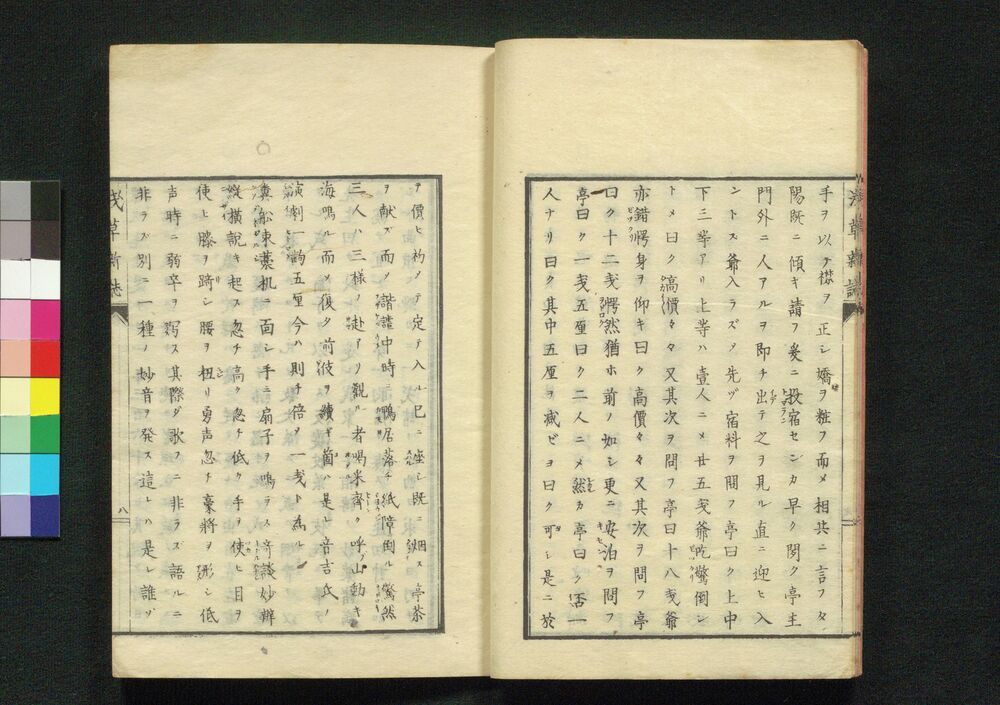 手ヲ以テ襟ヲ正シ嬌ヲ粧フ而メ相共ニ言フタ
陽既ニ傾キ請フ爰ニ投宿センカ早ク関ク亭主
門外ニ人アルヲ即チ出テ之ヲ見ル直ニ迎ヒ入
ントス爺入ラズメ先ヅ宿料ヲ問フ亭曰ク上中
下三等アリ上等ハ壹人ニメ廿五戔爺吃驚倒シ
トメ曰ク高價々々又其次ヲ問フ亭曰十八戔爺
亦錯愕身ヲ仰キ曰ク高價々々又其次ヲ問フ亭
曰ク十二戔愕然猶ホ前ノ如シ更ニ安泊ヲ問フ
亭曰ク一戔五厘曰ク二人ニメ然カ亭曰ク否一
人ナリ曰ク其中五厘ヲ減ビヨ曰ク可シ是ニ於
テ價ヒ初メテ定テ入ル已ニ座シ既烟ス亭茶
ヲ献ズ而メ諧謔中時鴨居落チ紙障倒ル驚然
三人ハ三様ノ赴アリ観ル者喝采齊ク呼フ山動キ
海鳴ル而メ復タ前彼ヲ續ギ箇ハ是レ音吉氏ノ
演劇一齣五厘今ハ則チ倍ヲ一戔ト為ル
眞舩東慕机ニ面シ手ニ扇子ヲ鳴ラス竒談妙辯
縦横説キ起ス忽チ高ク忽チ低ク手ヲ使ヒ目ヲ
使ヒ膝ヲ踦シ腰ヲ扭リ勇声忽チ豪將ヲ形シ低
声時ニ弱卒ヲ写ス其際ダ歌フニ非ラズ語ルニ
非ラズ別ニ一種ノ妙音ヲ発ス這レハ是レ誰ゾ
浅草新誌
八